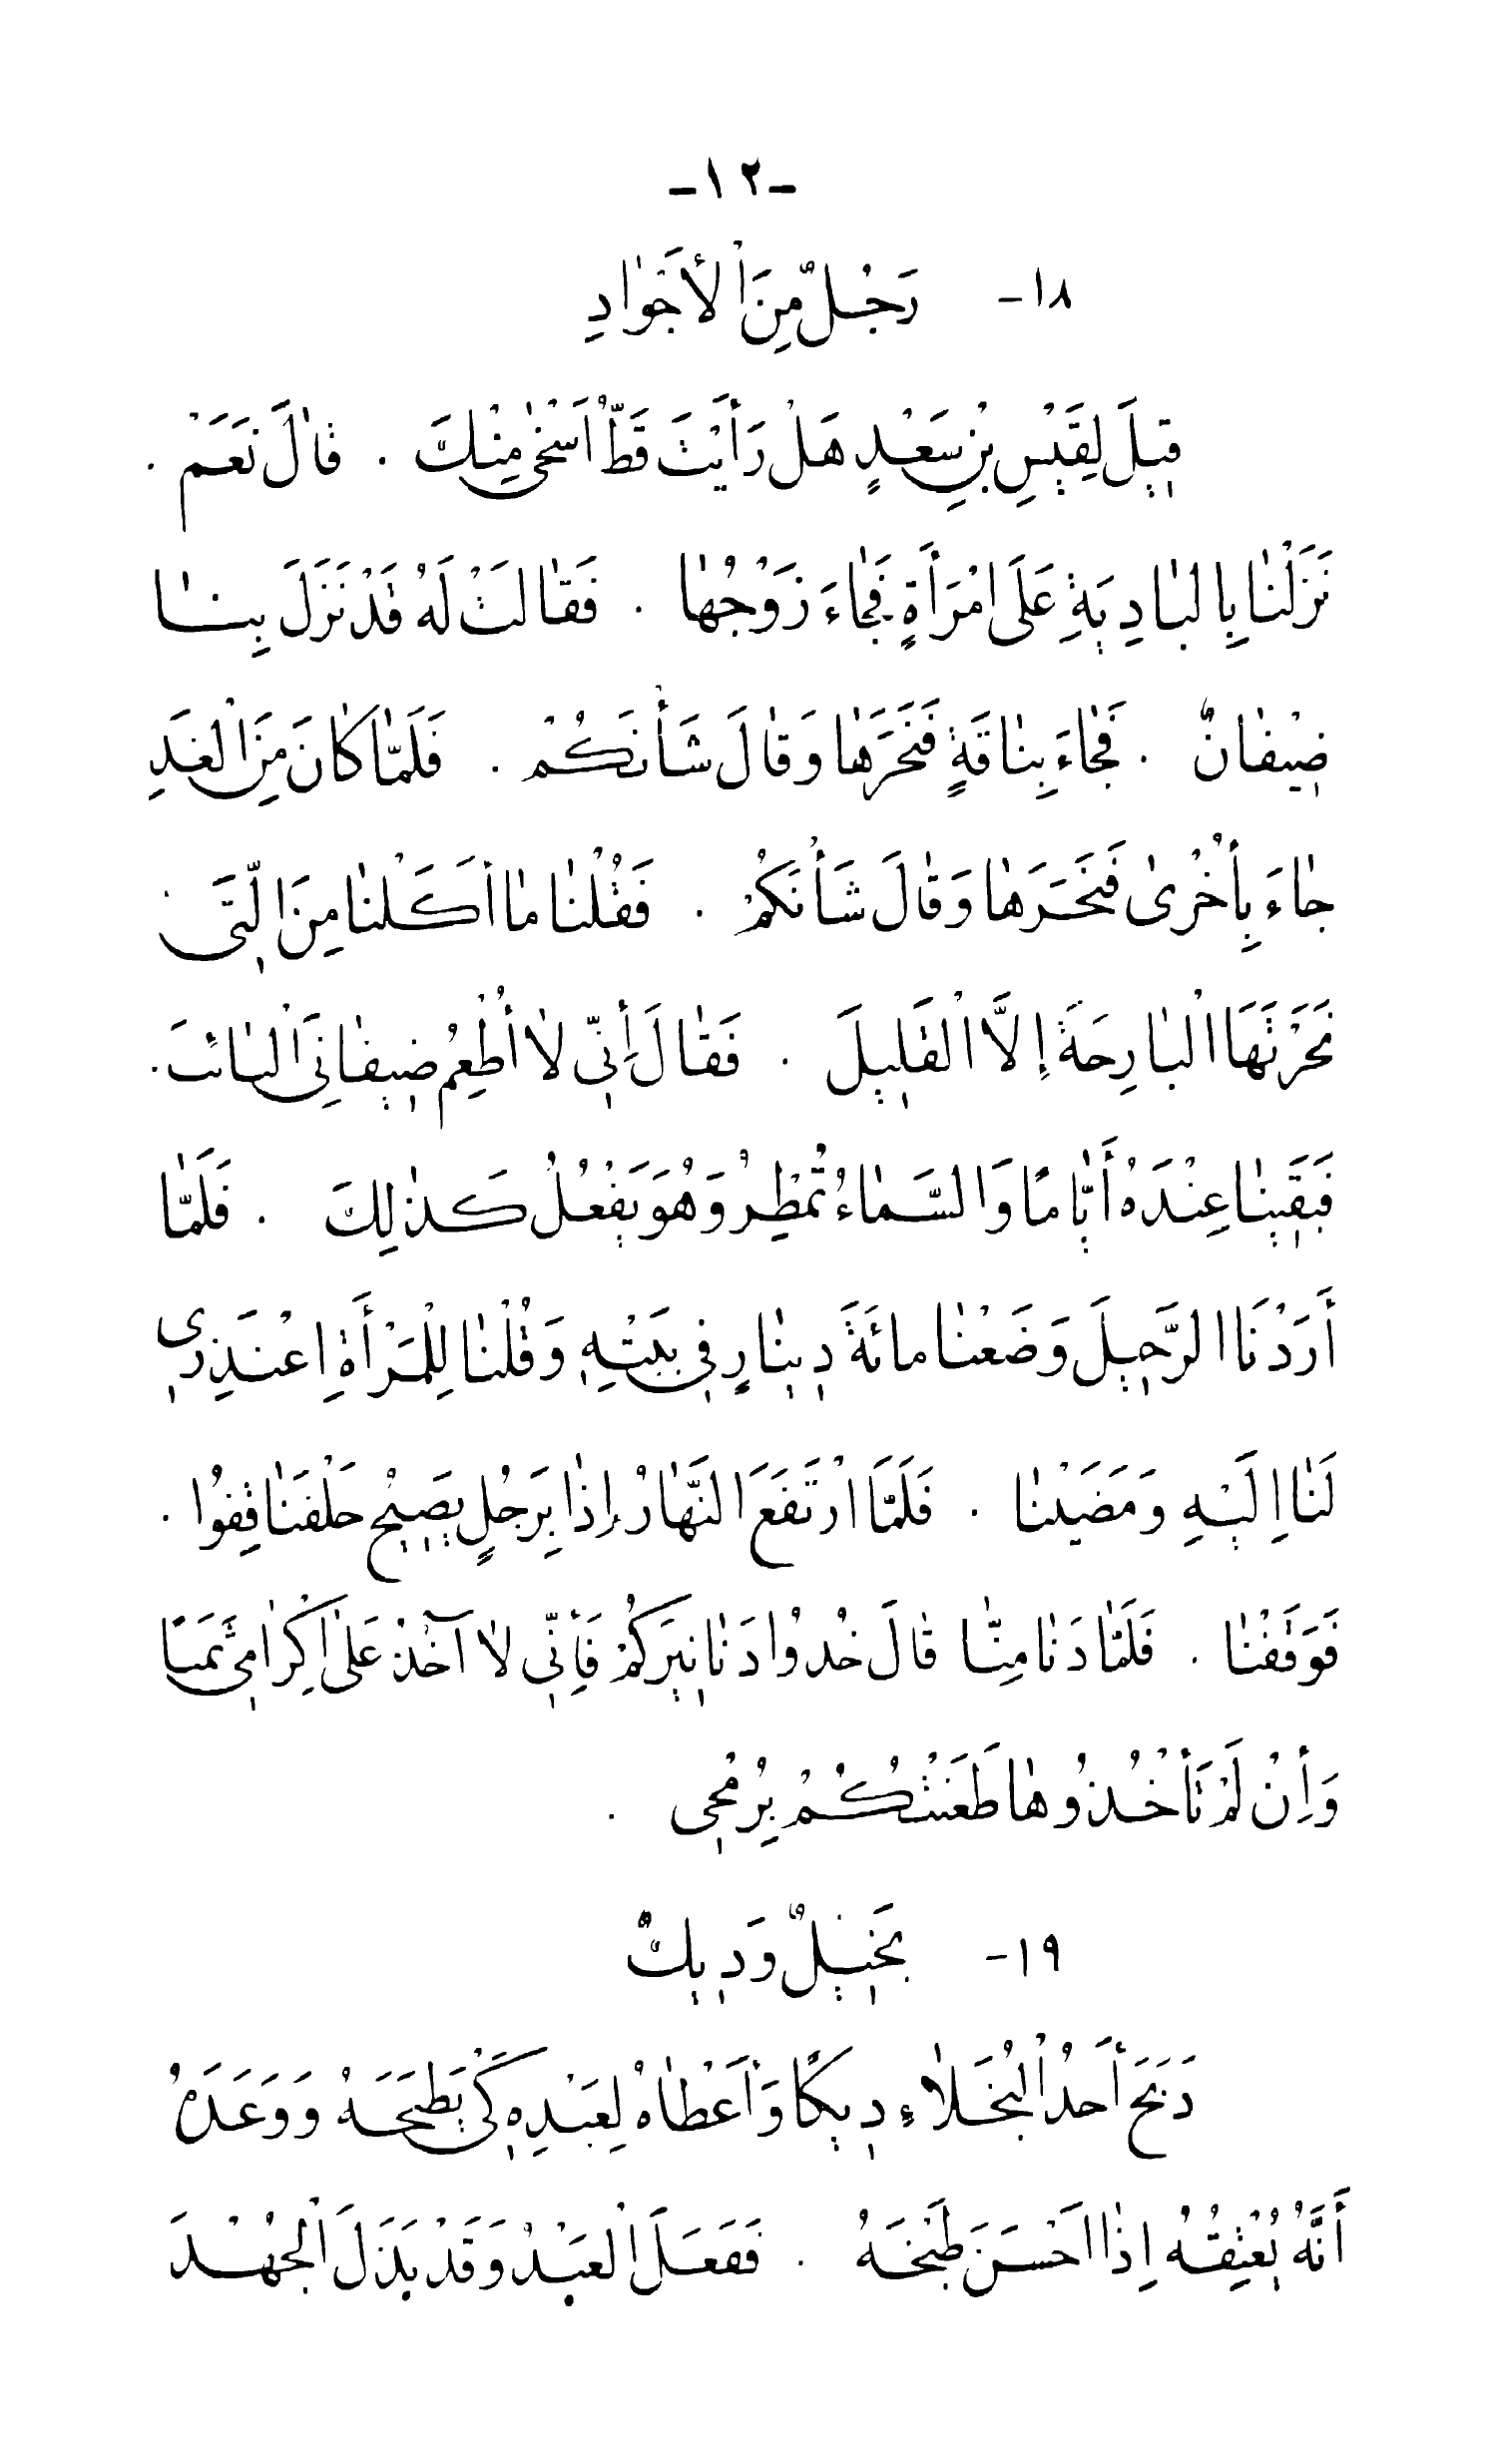 -١٢-
١٨- رَجُلٌ مِنَ الْأَجْوَادِ
قِيلَ لِقَيْسِ بْنِ سَعْدٍ هَلْ رَأَيْتَ قَطُّ أَسْخَىٰ مِنْكَ . قَالَ نَعَمْ .
نَزَلْنَا بِالْبَادِيَةِ عَلَى امْرَأَةٍ فَجَاءَ زَوْجُهَا . فَقَالَتْ لَهُ قَدْ نَزَلَ بِنَا
ضِيفَانٌ . فَجَاءَ بِنَاقَةٍ فَنَحَرَهَا وَقَالَ شَأْنَكُمْ . فَلَمَّا كَانَ مِنَ الْغَدِ
جَاءَ بِأُخْرَىٰ فَنَحَرَهَا وَقَالَ شَأْنَكُمْ . فَقُلْنَا مَا أَكَلْنَا مِنَ الَّتِي
نَحَرْتَهَا الْبَارِحَةَ إِلَّا الْقَلِيلَ . فَقَالَ أِنِّي لَا أُطْعِمُ ضِيفَانِيَ الْبَائِتَ .
فَبَقَيْنَا عِنْدَهُ أَيَّامًا وَالسَّمَاءُ تُمْطِرُ وَهُوَ يَفْعُلُ كَذٰلِكَ . فَلَمَّا
أَرَدْنَا الرَّحِيلَ وَضَعْنَا مائَةَ دِينَارٍ فِي بَيْتِهِ وَقُلْنَا لِلْمَرْأَةِ اِعْتَذِرِي
لَنَا اِلَيْهِ وَمَضَيْنَا . فَلَمَّا ارْتَفَعَ النَّهَارُ إِذَا بِرَجُلٍ يَصِيحُ خَلْفَنَا قِفُوا .
فَوَقَفْنَا . فَلَمَّا دَنَا مِنَّا قَالَ خُذُوا دَنَانِيرَكُمْ فَأِنِّي لَا آخُذُ عَلَىٰ اِكْرَامِي ثَمَنًا
وَأِنْ لَمْ تَأْخُذُوهَا طَعَنْتُكُمْ بِرُمْحِي .
١٩- بَخِيلٌ وَدِيكٌ
ذَبَحَ أَحَدُ الْبُخَلَاءِ دِيكًا وَأَعْطَاهُ لِعَبْدِهِ كَيْ يَطْبَخَهُ وَوَعَدَهُ
أَنَّهُ يُعْتِقُهُ اِذَا اَحْسَنَ طَبْخَهُ . فَفَعَلَ الْعَبْدُ وَقَدْ بَذَلَ الْجُهْدَ